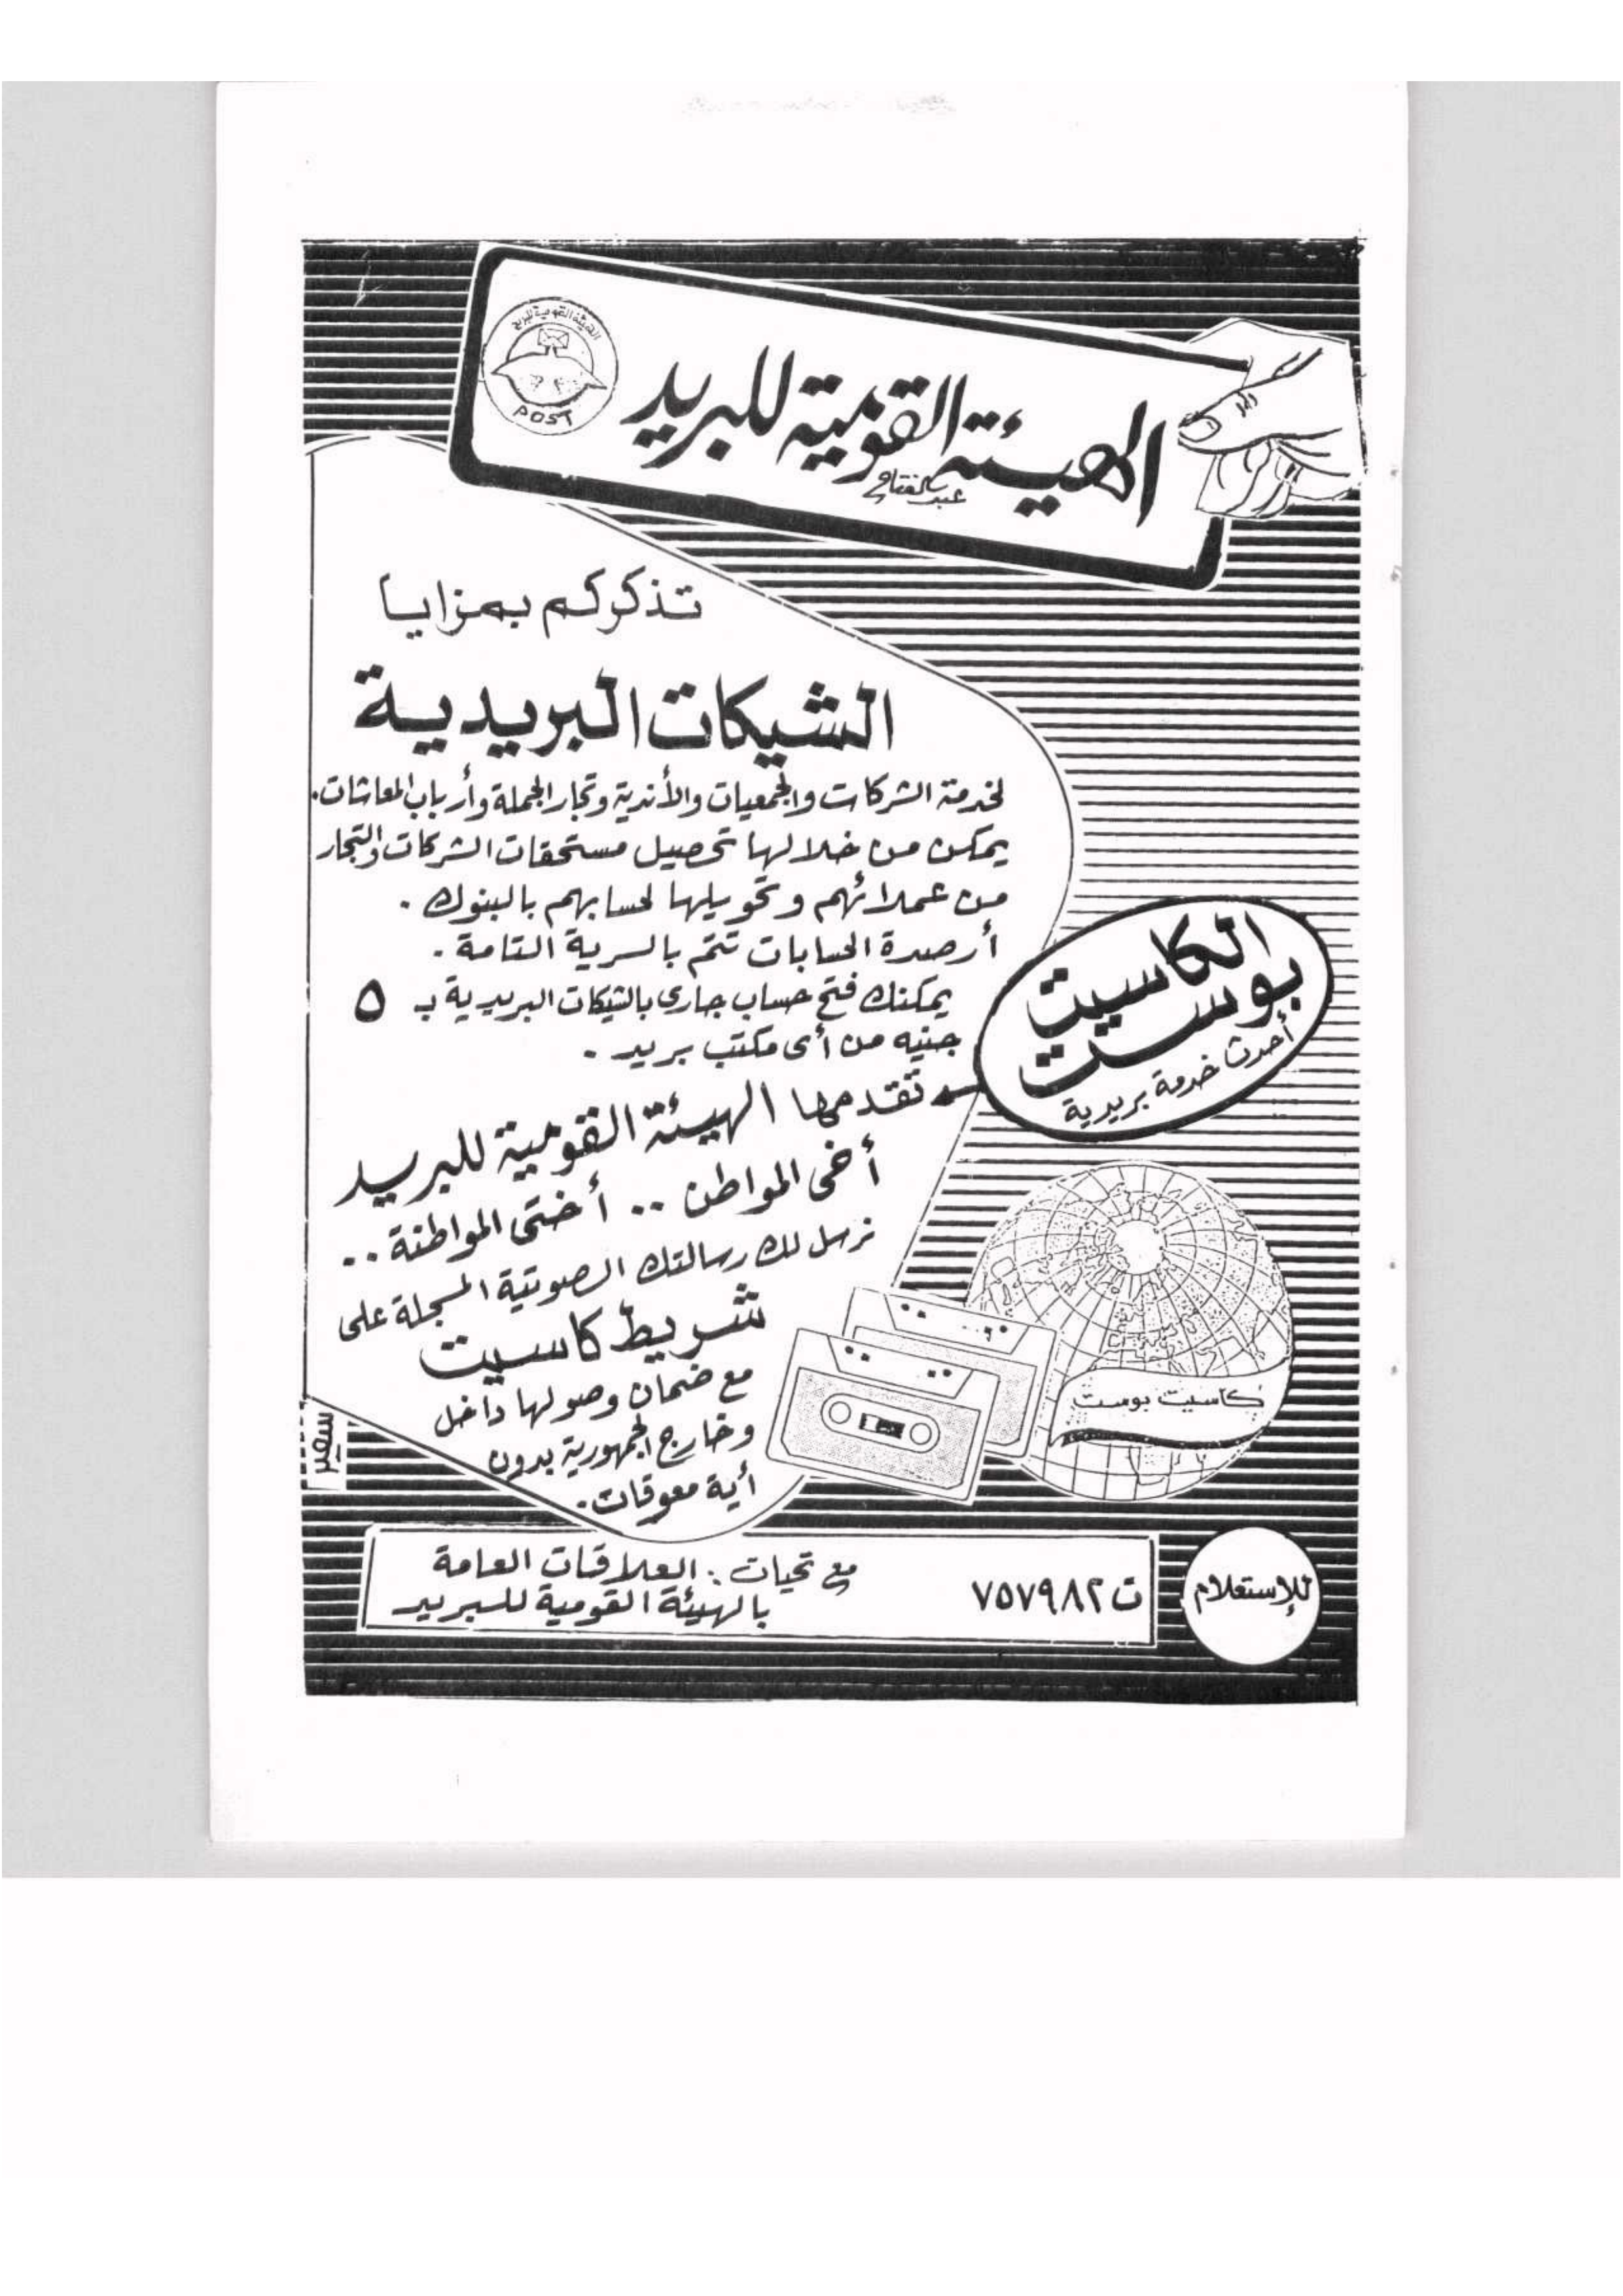 الهيئة القومية للبريد
POST
الهيئة القومية للبريد
عبد الفتاح
تذكركم بمزايا
الشيكات البريدية
لخدمة الشركات والجمعيات والأندية وتجار الجملة وأرباب المعاشات.
يمكن من خلالها تحصيل مستحقات الشركات والتجار
من عملائهم وتحويلها لحسابهم بالبنوك.
أرصدة الحسابات تتم بالسرية التامة.
يمكنك فتح حساب جارى بالشيكات البريدية بـ ٥
جنيه من أى مكتب بريد.
الكاسيت
بوست
أحدث خدمة بريدية
تقدمها الهيئة القومية للبريد
أخى المواطن .. أختى المواطنة ..
نرسل لك رسالتك الصوتية المسجلة على
شريط كاسيت
مع ضمان وصولها داخل
وخارج الجمهورية بدون
أية معوقات.
كاسيت بوست
سمير
للإستعلام
ت ٧٥٧٩٨٢
مع تحيات: العلاقات العامة
بالهيئة القومية للبريد